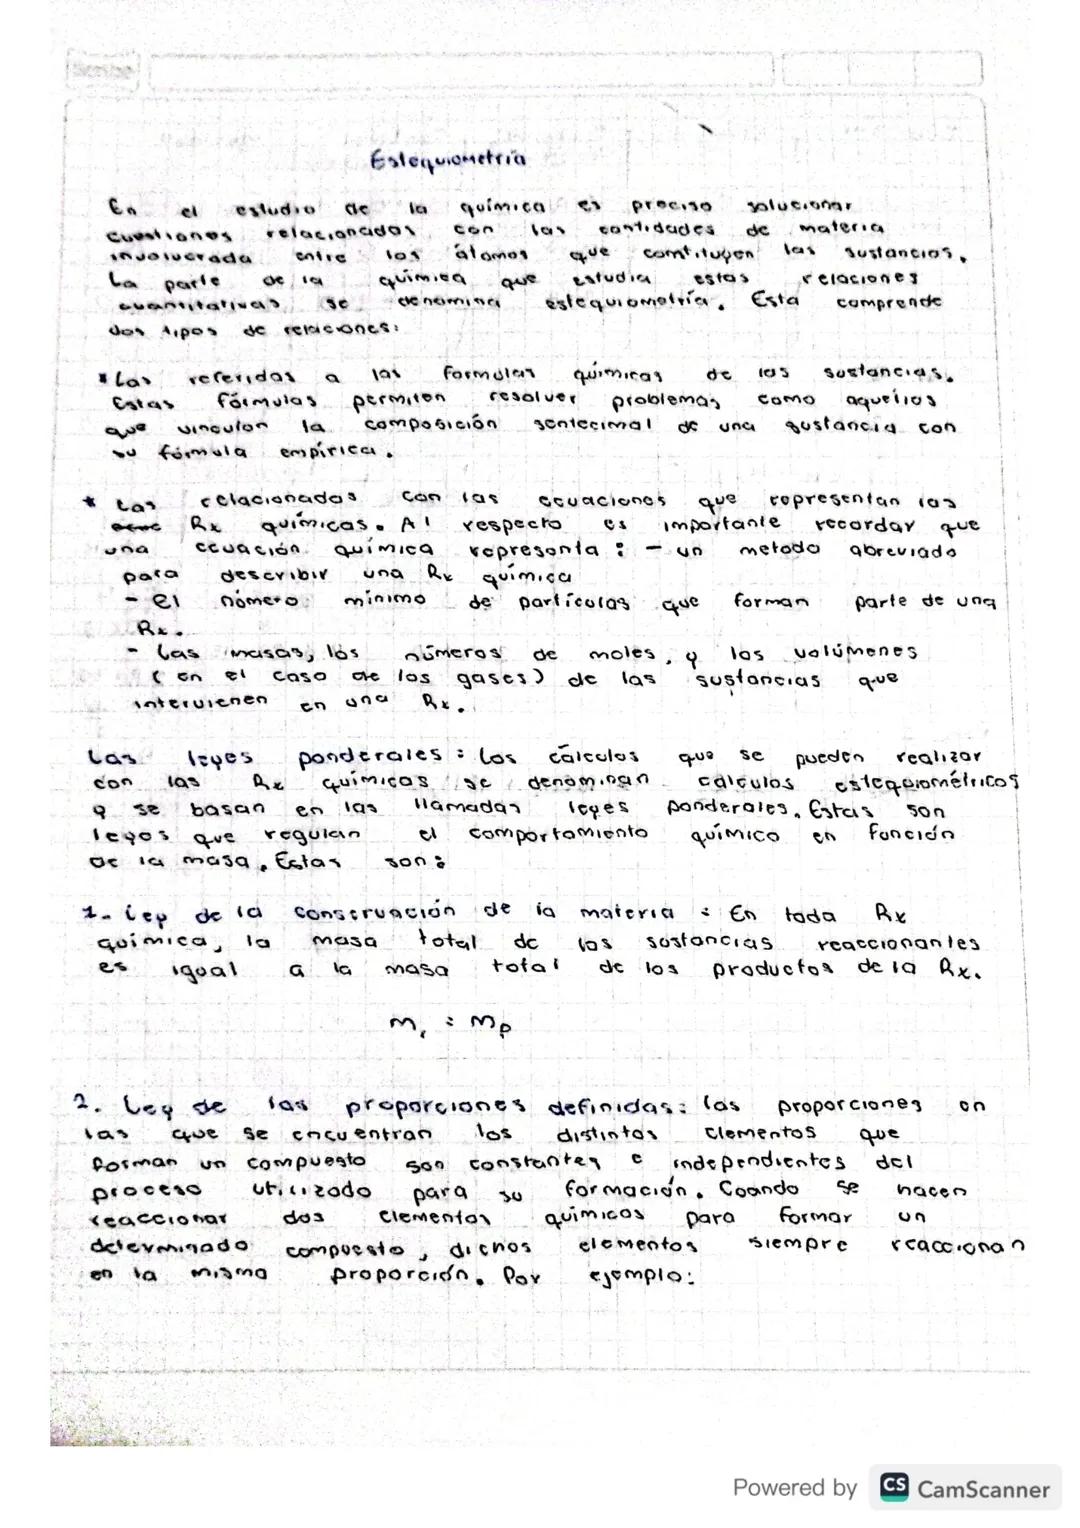 Estequiometría
En el estudio de la química es preciso solucionar
cuestiones relacionados con las cantidades de materia
involucrada entre los átomos que constituyen las sustancias.
La parte de la química que estudia estas relaciones
cuantitativas se denomina estequiometría. Esta comprende
dos tipos de relaciones:
* Las referidas a las formulas químicas de las sustancias.
Estas fórmulas permiten resolver problemas como aquellos
que vinculan la composición sentecimal de una sustancia con
su fórmula empírica.
* Las relacionadas con las ecuaciones que representan las
Rx químicas. Al respecto es importante recordar que
una ecuación química representa: - un metodo abreviado
para describir una Rx química
- el número mínimo de partículas que forman parte de una
Rx.
- Las masas, los números de moles, y los volúmenes
(en el caso de los gases) de las sustancias que
intervienen en una Rx.
Las leyes ponderales: Los cálculos que se pueden realizar
con las Rx químicas se denominan cálculos estequiométricos
y se basan en las llamadas leyes ponderales. Estas son
leyes que regulan el comportamiento químico en función
de la masa. Estas son:
1- Ley de la conservación de la materia: En toda Rx
química, la masa total de las sustancias reaccionantes
es igual a la masa total de los productos de la Rx.
mr = mp
2. Ley de las proporciones definidas: las proporciones en
las que se encuentran los distintos elementos que
forman un compuesto son constantes e independientes del
proceso utilizado para su formación. Cuando se hacen
reaccionar dos elementos químicos para formar un
determinado compuesto, dichos elementos siempre reaccionan
en la misma proporción. Por ejemplo:
Powered by CS CamScanner